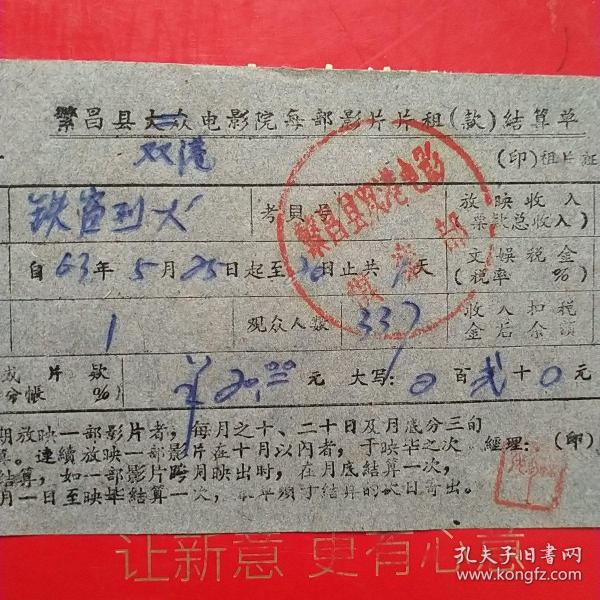 繁昌县大众电影院每部影片片租(款)結算单
双港
(印)租片証
铁窗烈火
考貝号
放映收入
(票款总收入)
自63年5月25日起至26日止共 天
文娱税金
(税率 %)
1
观众人数
337
收入扣税
金后余額
成片款
分帳 %)
¥20.00元 大写:0百弍十0元
期放映一部影片者,每月之十、二十日及月底分三旬
。連續放映一部影片在十月以內者,于映毕之次
結算,如一部影片跨月映出时,在月底結算一次,
月一日至映毕結算一次,
經理: (印)
繁昌县双港电影
让新意 更有心意
孔夫子旧书网
www.kongfz.com